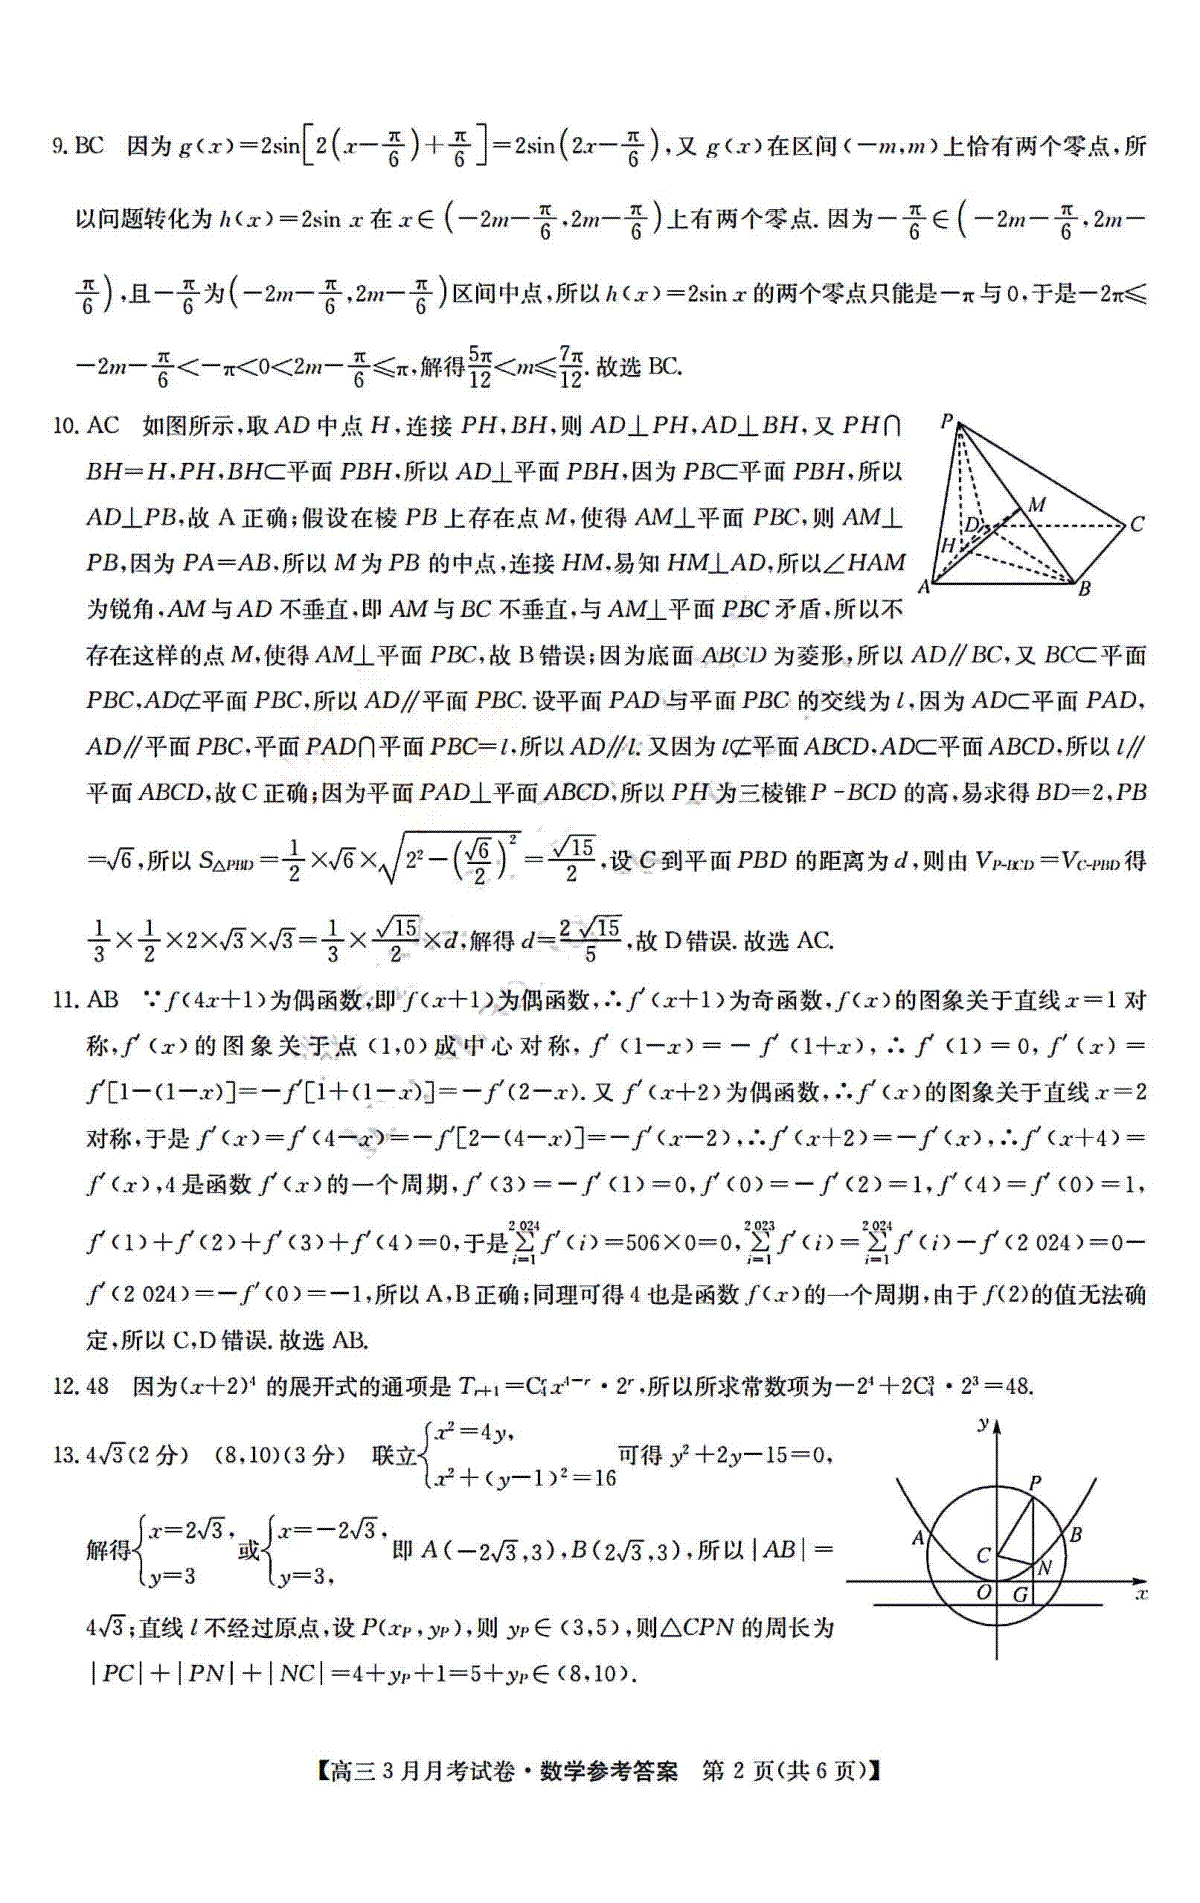 9. BC 因为 g(x)=2sin[2(x-π/6)+π/6]=2sin(2x-π/6),又 g(x)在区间(-m,m)上恰有两个零点,所
以问题转化为 h(x)=2sin x 在 x∈(-2m-π/6,2m-π/6)上有两个零点. 因为-π/6∈(-2m-π/6,2m-
π/6),且-π/6为(-2m-π/6,2m-π/6)区间中点,所以 h(x)=2sin x 的两个零点只能是-π 与 0,于是-2π≤
-2m-π/6<-π<0<2m-π/6≤π,解得5π/12<m≤7π/12. 故选 BC.
10. AC 如图所示,取 AD 中点 H,连接 PH,BH,则 AD⊥PH,AD⊥BH,又 PH∩
BH=H,PH,BH⊂平面 PBH,所以 AD⊥平面 PBH,因为 PB⊂平面 PBH,所以
AD⊥PB,故 A 正确;假设在棱 PB 上存在点 M,使得 AM⊥平面 PBC,则 AM⊥
PB,因为 PA=AB,所以 M 为 PB 的中点,连接 HM,易知 HM⊥AD,所以∠HAM
为锐角,AM 与 AD 不垂直,即 AM 与 BC 不垂直,与 AM⊥平面 PBC 矛盾,所以不
P
M
D
C
H
A
B
存在这样的点 M,使得 AM⊥平面 PBC,故 B 错误;因为底面 ABCD 为菱形,所以 AD∥BC,又 BC⊂平面
PBC,AD⊄平面 PBC,所以 AD∥平面 PBC. 设平面 PAD 与平面 PBC 的交线为 l,因为 AD⊂平面 PAD,
AD∥平面 PBC,平面 PAD∩平面 PBC=l,所以 AD∥l. 又因为 l⊄平面 ABCD,AD⊂平面 ABCD,所以 l∥
平面 ABCD,故 C 正确;因为平面 PAD⊥平面 ABCD,所以 PH 为三棱锥 P-BCD 的高,易求得 BD=2,PB
=√6,所以 S△PBD=1/2×√6×√(2²-(√6/2)²)=√15/2,设 C 到平面 PBD 的距离为 d,则由 V_{P-BCD}=V_{C-PBD}得
1/3×1/2×2×√3×√3=1/3×√15/2×d,解得 d=2√15/5,故 D 错误. 故选 AC.
11. AB ∵f(4x+1)为偶函数,即 f(x+1)为偶函数,∴f′(x+1)为奇函数,f(x)的图象关于直线 x=1 对
称,f′(x)的图象关于点(1,0)成中心对称,f′(1-x)=-f′(1+x),∴f′(1)=0,f′(x)=
f′[1-(1-x)]=-f′[1+(1-x)]=-f′(2-x). 又 f′(x+2)为偶函数,∴f′(x)的图象关于直线 x=2
对称,于是 f′(x)=f′(4-x)=-f′[2-(4-x)]=-f′(x-2),∴f′(x+2)=-f′(x),∴f′(x+4)=
f′(x),4 是函数 f′(x)的一个周期,f′(3)=-f′(1)=0,f′(0)=-f′(2)=1,f′(4)=f′(0)=1,
f′(1)+f′(2)+f′(3)+f′(4)=0,于是∑_{i=1}^{2 024}f′(i)=506×0=0,∑_{i=1}^{2 023}f′(i)=∑_{i=1}^{2 024}f′(i)-f′(2 024)=0-
f′(2 024)=-f′(0)=-1,所以 A,B 正确;同理可得 4 也是函数 f(x)的一个周期,由于 f(2)的值无法确
定,所以 C,D 错误. 故选 AB.
12. 48 因为(x+2)⁴ 的展开式的通项是 T_{r+1}=C_4^r x^{4-r}·2^r,所以所求常数项为-2⁴+2C_4^3·2³=48.
13. 4√3(2 分) (8,10)(3 分) 联立{x²=4y, x²+(y-1)²=16 可得 y²+2y-15=0,
解得{x=2√3, y=3 或{x=-2√3, y=3, 即 A(-2√3,3),B(2√3,3),所以|AB|=
4√3;直线 l 不经过原点,设 P(x_P,y_P),则 y_P∈(3,5),则△CPN 的周长为
|PC|+|PN|+|NC|=4+y_P+1=5+y_P∈(8,10).
y
P
A
B
C
N
O
G
x
【高三 3 月月考试卷·数学参考答案 第 2 页(共 6 页)】